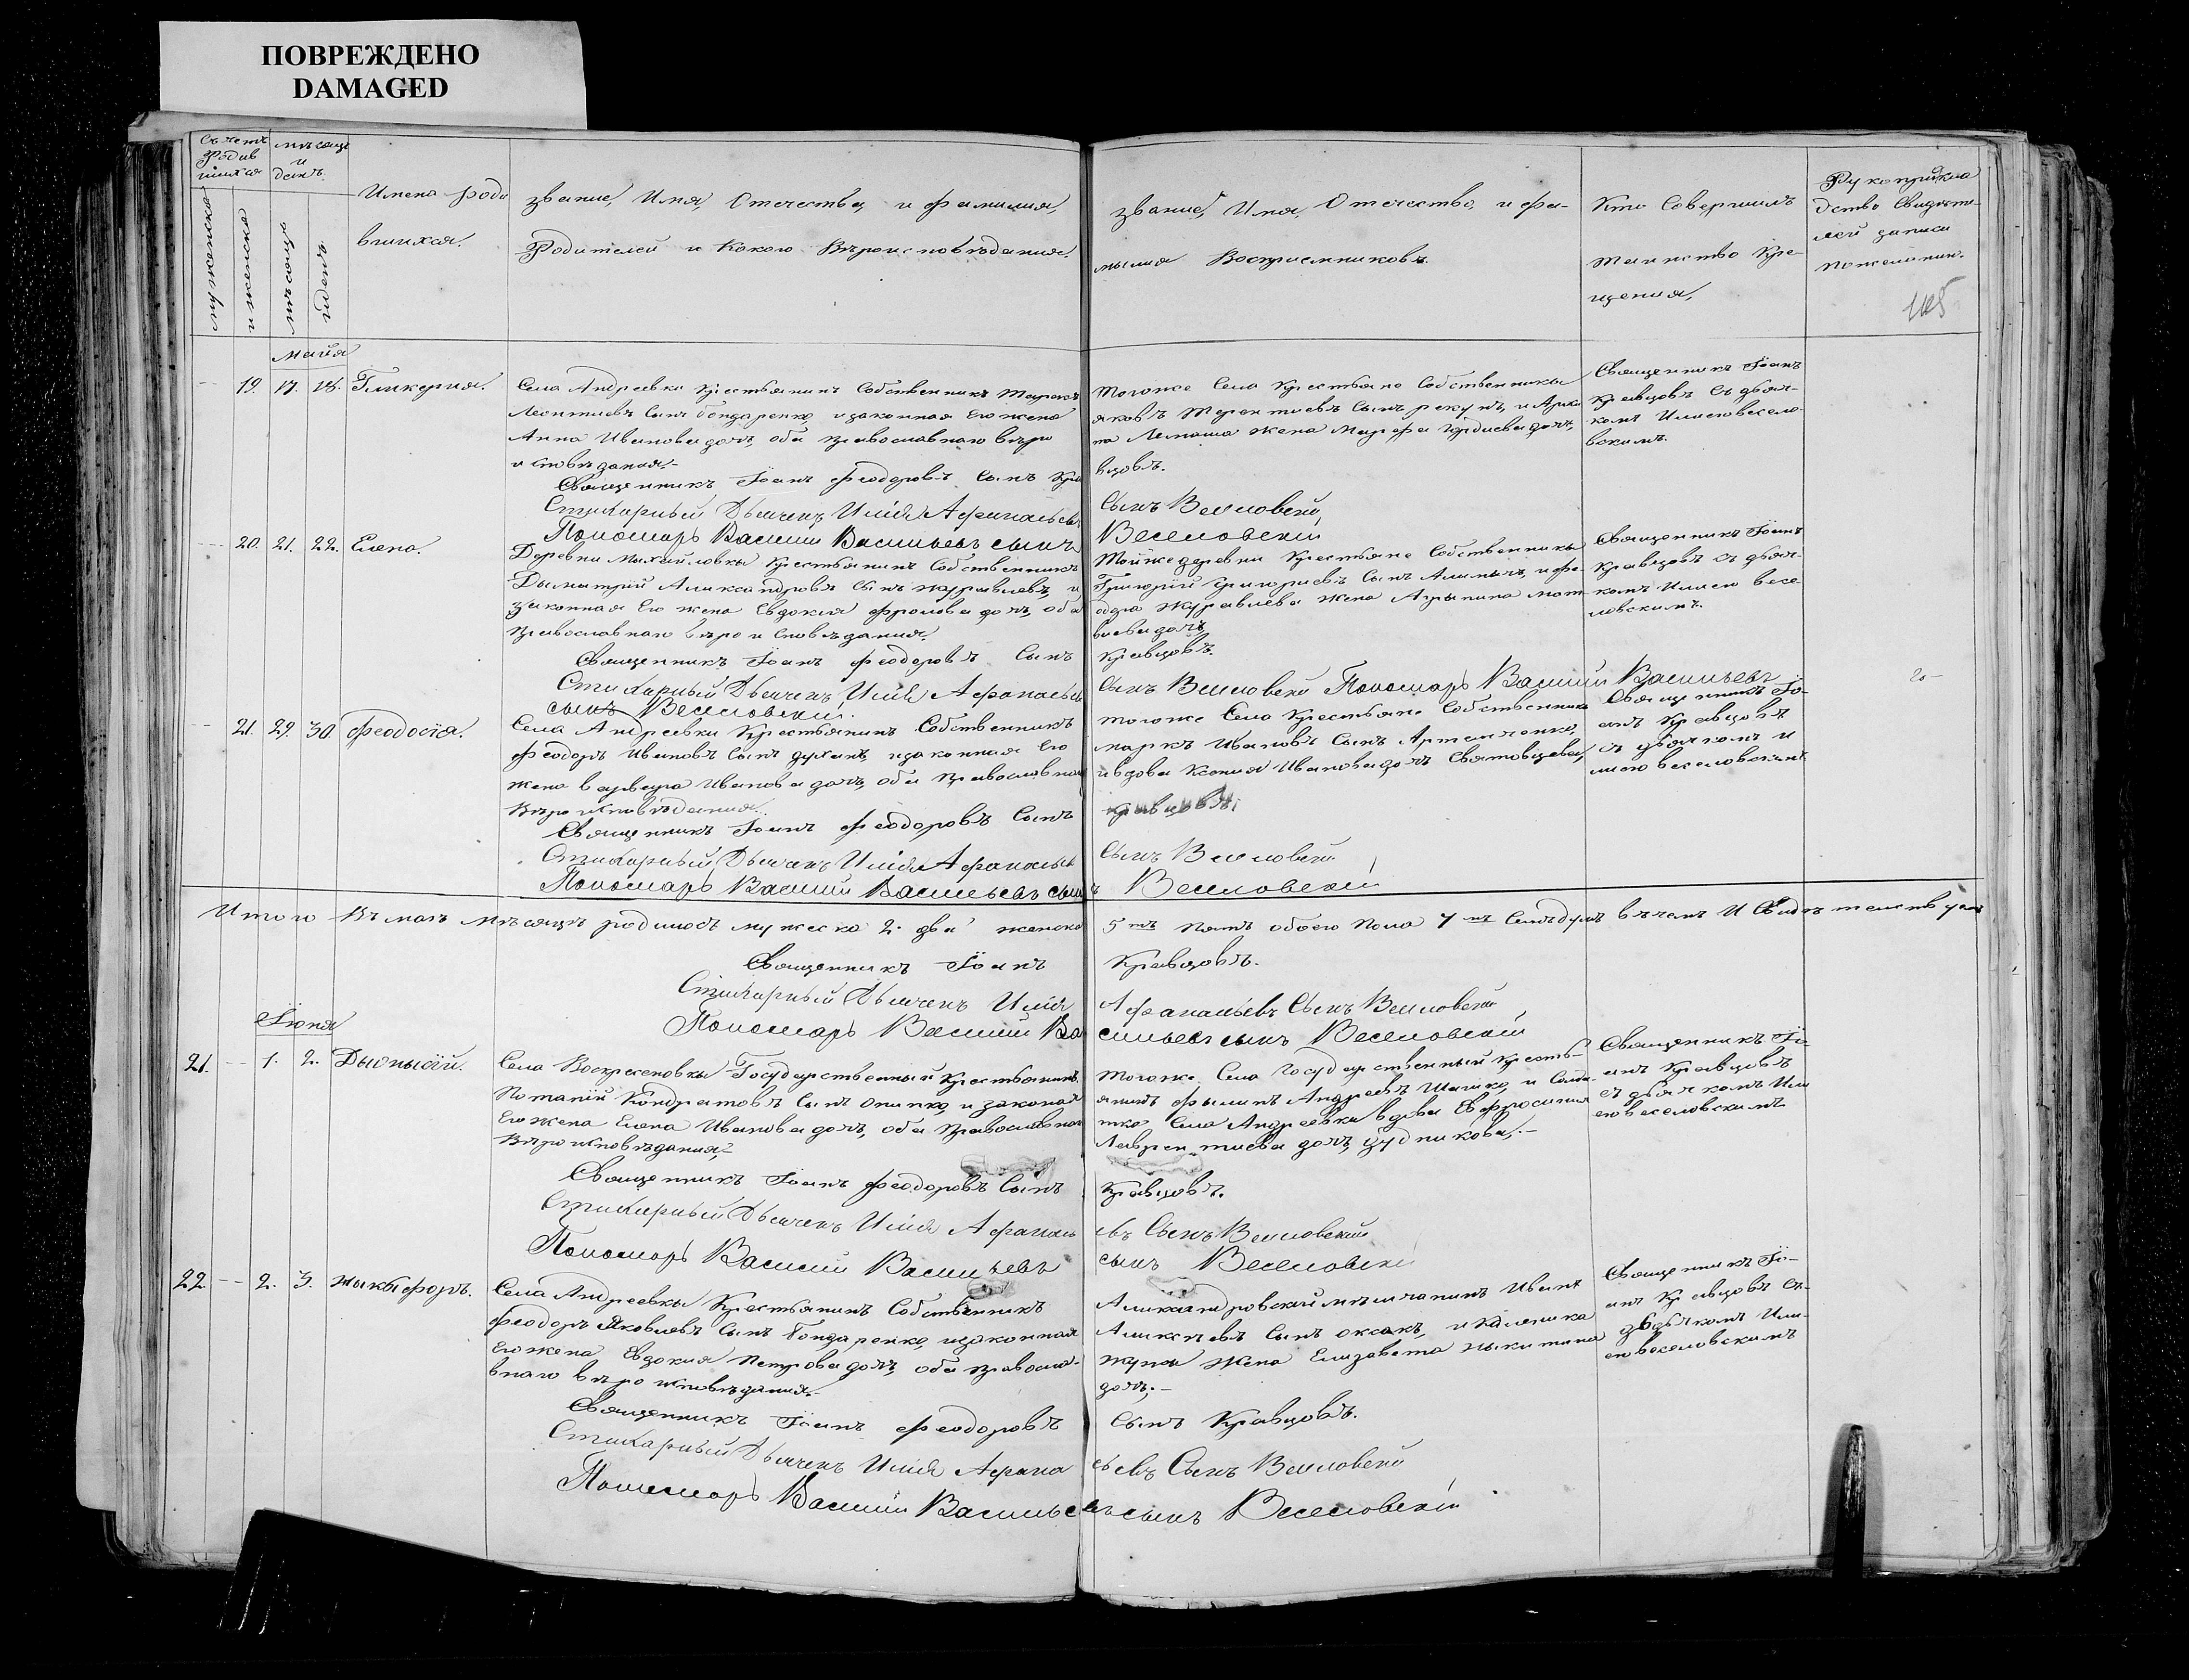 ПОВРЕЖДЕНО
DAMAGED
Имена роди
вшихся.
звание, Имя, Отечество, и фамилия,
Родителей и Какого Вѣроисповѣдания.
звание, Имя, Отечество, и фа-
милия Восприемниковъ.
Кто Совершилъ
таинство Кре-
щения,
мѣсяцъ
и
день.
мужеска
и женска
мѣсяцъ
и день
105
Майя
19. 17. 18. Гликерия.
Села Андреевки Крестьянинъ Собственникъ
Леонтиевъ Сынъ бондаренко, и законная Его жена
Анна Иванова дочь, оба православнаго вѣро
исповѣдания.-
Священникъ Іоанъ Феодоровъ Сынъ Кра
вцовъ.
Стихарный Дьячекъ Илія Афанасьевъ
Сынъ Веселовскій
Пономарь Василий Васильевъ сынъ
Веселовскій
Тогоже Села Крестьяне Собственники
Яковъ Терентиевъ Сынъ рекунъ, и Архи
па Лемеша жена Марфа Гордиева дочь,
Священникъ Іоанъ
Кравцовъ Съ дьяч-
комъ Илиею весело-
вскимъ.
20. 21. 22. Елена.
Деревни Михайловки Крестьянинъ Собственникъ
Дымытрий Александровъ Сынъ журавлевъ, и
законная Его жена Евдокия фролова дочь, оба
православнаго вѣроисповѣдания.
Священникъ Іоанъ феодоровъ Сынъ
Кравцовъ.
Стихарный Дьячекъ Илія Афанасьев
Сынъ Веселовскій Пономарь Василий Васильевъ
сынъ Веселовскій.
Тойже деревни Крестьяне Собственники
Григорий Григориевъ Сынъ Алиныч, и фе-
одора Журавлева жена Агрыпина мат-
виева дочь,
Священникъ Іоанъ
Кравцовъ съ дьяч-
комъ Илиею весе
ловскимъ.
21. 29. 30. Феодосія.
Села Андреевки Крестьянинъ Собственникъ
Феодоръ Ивановъ Сынъ духинъ, и законная Его
жена варвара Иванова дочь, оба православнаго
Вѣроисповѣдания.
Священникъ Іоанъ Феодоровъ Сынъ
Кравцовъ.
Стихарный Дьячекъ Илія Афанасьев
Сынъ Веселовскій
Пономарь Василий Васильевъ сынъ
Веселовскій
тогоже Села Крестьяне Собственники
маркъ Ивановъ Сынъ Артемченко,
и вдова Ксения Иванова дочь Святовцева,
Священникъ Іо-
анъ Кравцовъ
съ дьячкомъ И
лиею веселовскимъ
Итого Въ маѣ мѣсяцѣ родилось мужеска 2. два женска 5 ть пять обоего Пола 7 мъ
Священникъ Іоанъ Кравцовъ.
Стихарный Дьячекъ Илія Афанасьевъ Сынъ Веселовскій
Пономарь Василий Васильевъ сынъ Веселовскій
Іюня
21. 1. 2. Дыонысій.
Села Воскресеновки Государственный Крестьянинъ
Потапий Кондратовъ Сынъ онипко, и законая
Его жена Елена Иванова дочь, оба православнаго
Вѣроисповѣдания,
Священникъ Іоанъ Феодоровъ Сынъ
Кравцовъ.
Стихарный Дьячекъ Илія Афанась
евъ Сынъ Веселовскій
Пономарь Василий Васильевъ
сынъ Веселовскій
Тогоже Села Государственный Кресть-
янинъ филипъ Андреевъ Шатко, и Солда-
тка Села Андреевки вдова Евфросиния
Лаврентиева дочь дудникова,-
Священникъ Іо-
анъ Кравцовъ
съ дьячкомъ Или
ею веселовскимъ
22. 2. 3. Ныкыфоръ.
Села Андреевки Крестьянинъ Собственникъ
Феодоръ Яковлевъ Сынъ бондаренко, и законная
Его жена Евдокия Петрова дочь, оба правосла-
внаго вѣроисповѣдания.-
Священникъ Іоанъ Феодоровъ
Сынъ Кравцовъ.
Стихарный Дьячекъ Илія Афана
сьевъ Сынъ Веселовскій
Пономарь Василий Васильевъ сынъ Веселовскій
Александровский мѣщанинъ Иванъ
Алексѣевъ Сынъ оксакъ,
жена Елизавета Ныкитина
дочь,-
Священникъ Іо-
анъ Кравцовъ Съ
дьячкомъ Или-
ею веселовскимъ